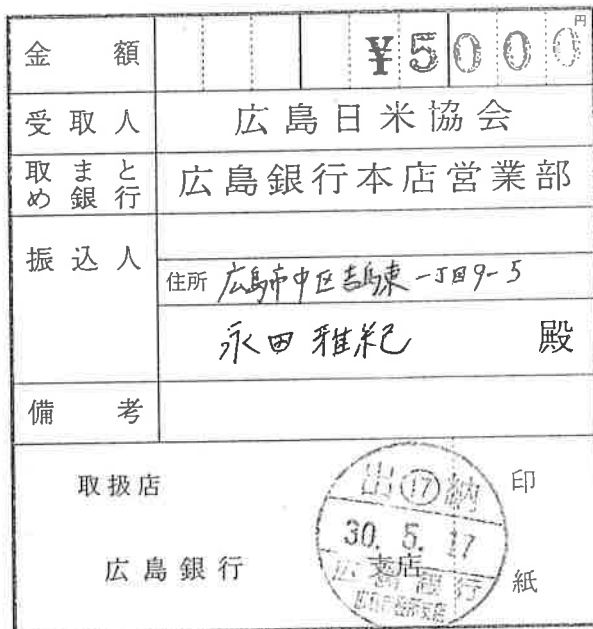 金額 ¥5000円
受取人 広島日米協会
取まとめ銀行 広島銀行本店営業部
振込人
住所 広島市中区吉島東一丁目9-5
永田雅紀 殿
備考
取扱店
広島銀行 支店
出⑰納
30. 5. 17
広島銀行
印紙